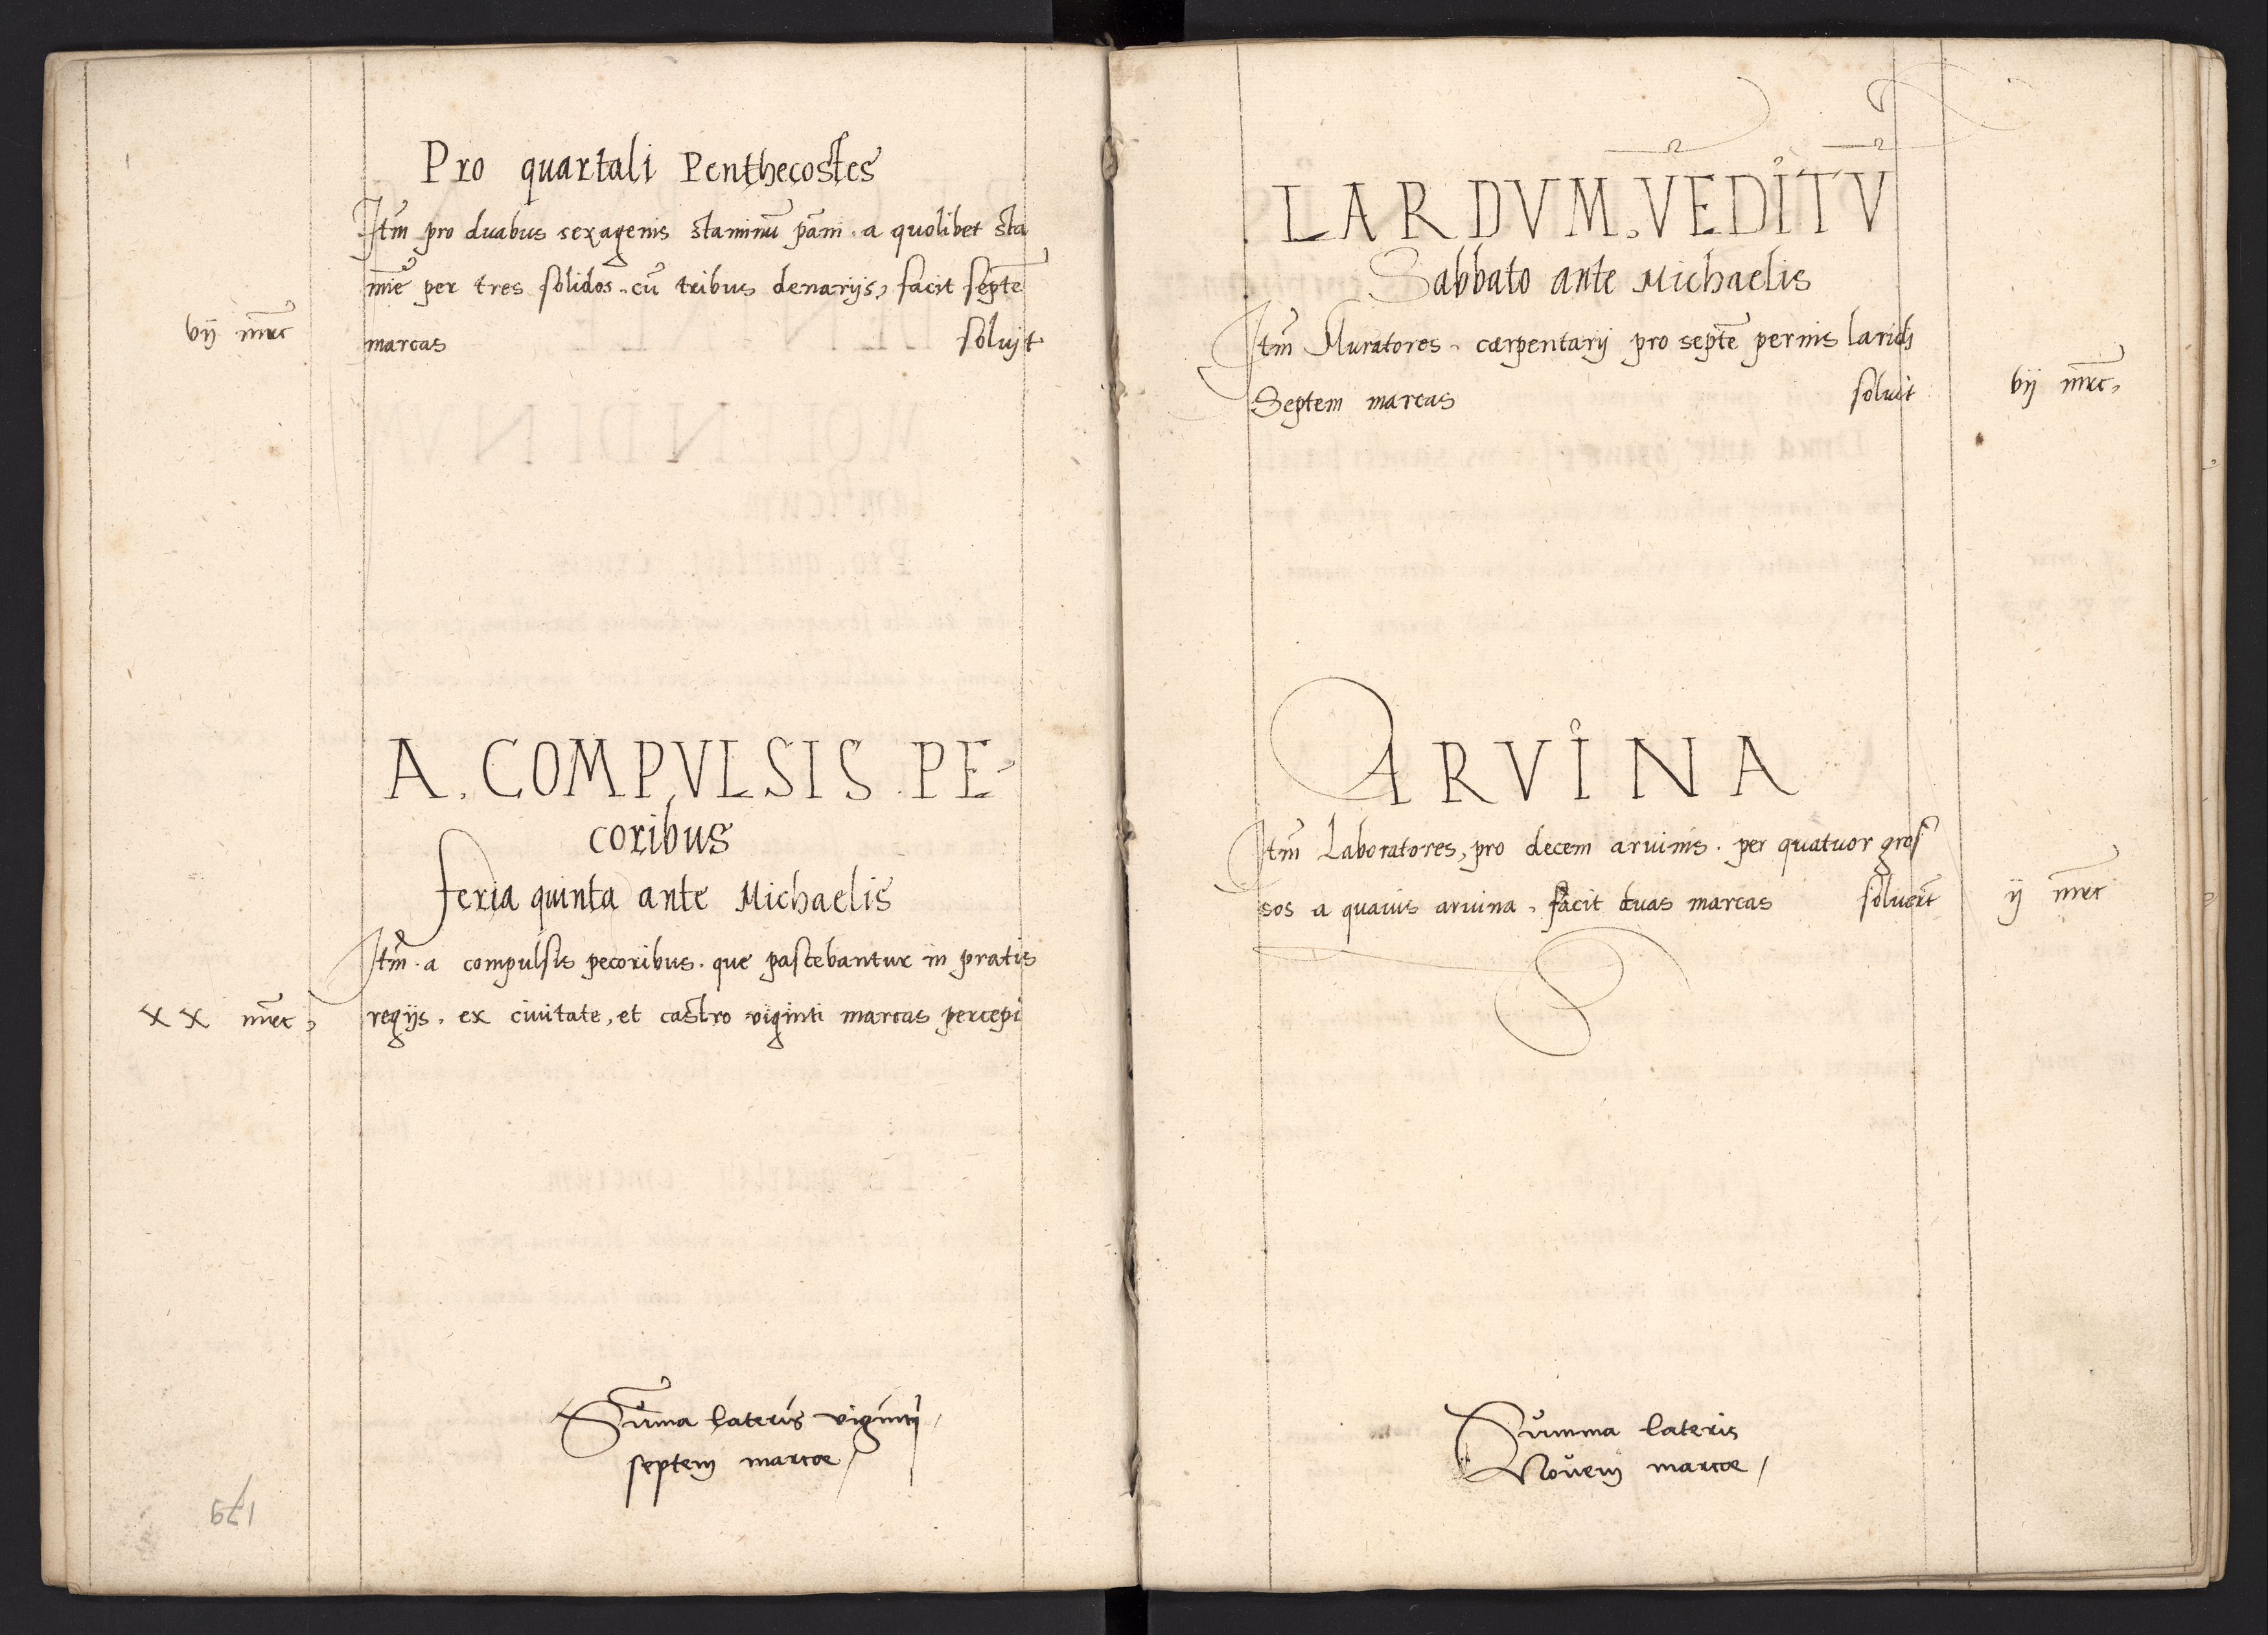 Pro quartali Penthecostes
Itm̃ pro duabus sexagenis staminũ pãni . a quolibet sta
mĩe per tres solidos . cũ tribus denarijs, facit septẽ
vij mrc̃ marcas soluit
A . COMPVLSIS . PE-
coribus
feria quinta ante Michaelis
Itm̃ . a compulsis pecoribus . que pascebantur in pratis
xx mrc̃, regijs . ex ciuitate, et castro viginti marcas percepi
Sum̃a lateris viginti
septem marcae /
179
LARDVM . VẼDITṼ
Sabbato ante Michaelis
Itm̃ Muratores . carpentarij pro septẽ pernis laridi
Septem marcas soluit vij mrc̃,
ARVINA
Itm̃ Laboratores, pro decem aruinis . per quatuor gros
sos a quauis aruina , facit duas marcas soluer̃t ij mrc̃
Summa lateris
Novem marcae /